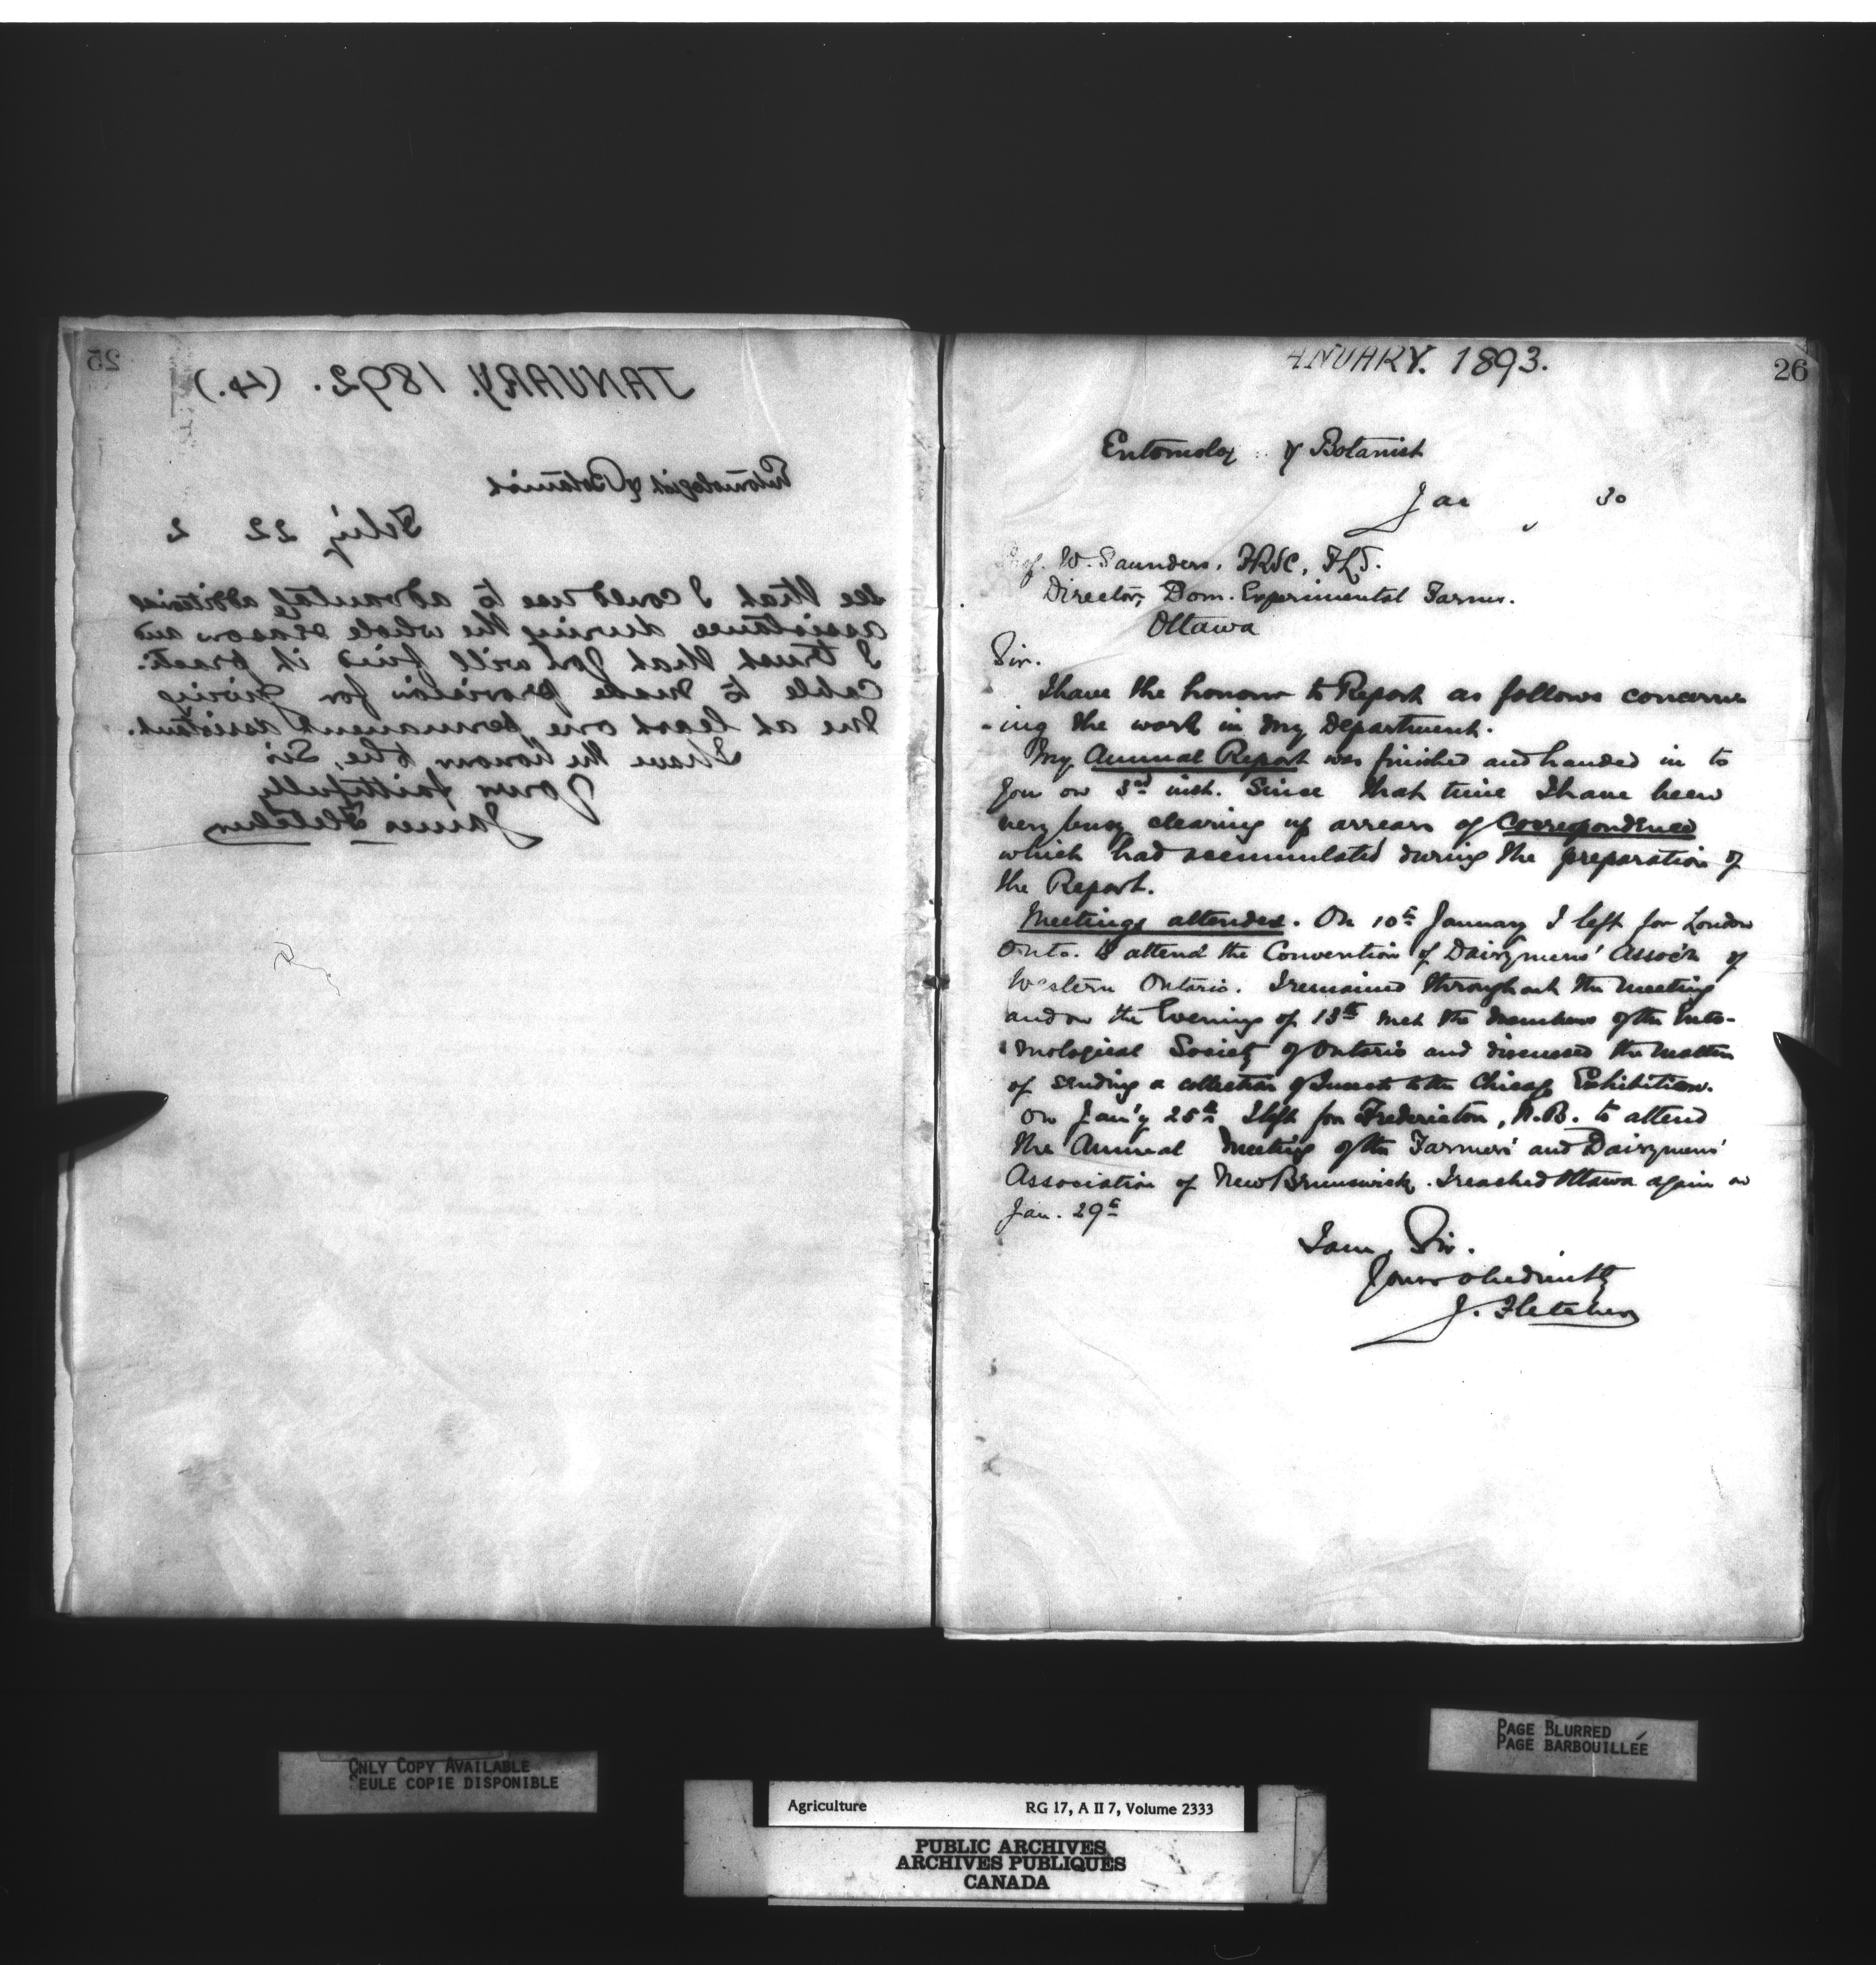 25
JANUARY. 1892. (4.)
Entomologist & Botanist
Feb'y 22 2
see that I could use to advantage additional
assistance during the whole season and
I trust that you will find it practi-
cable to make provision for giving
me at least one permanent assistant.
I have the honour to be, Sir
Yours faithfully
James Fletcher
26
ANUARY. 1893.
Entomolog & Botanist
Jan 30
Prof. W. Saunders, FRSC, FLS.
Director, Dom. Experimental Farms.
Ottawa
Sir.
I have the honour to Report as follows concern
-ing the work in my Department.
My Annual Report was finished and handed in to
you on 3rd inst. Since that time I have been
very busy clearing up arrears of Correspondence
which had accumulated during the preparation of
the Report.
Meetings attended. On 10th January I left for London
Onto. to attend the Convention of Dairymens' Assoc'n of
Western Ontario. I remained throughout the meeting
and on the Evening of 13th met the members of the Ento-
mological Society of Ontario and discussed the matter
of sending a collection of Insects to the Chicago Exhibition.
On Jan'y 25th I left for Fredericton, N.B. to attend
the Annual Meeting of the Farmers' and Dairymens'
Association of New Brunswick. I reached Ottawa again on
Jan. 29th
I am, Sir.
Yours obediently
J. Fletcher
ONLY COPY AVAILABLE
SEULE COPIE DISPONIBLE
PAGE BLURRED
PAGE BARBOUILLÉE
Agriculture RG 17, A II 7, Volume 2333
PUBLIC ARCHIVES
ARCHIVES PUBLIQUES
CANADA